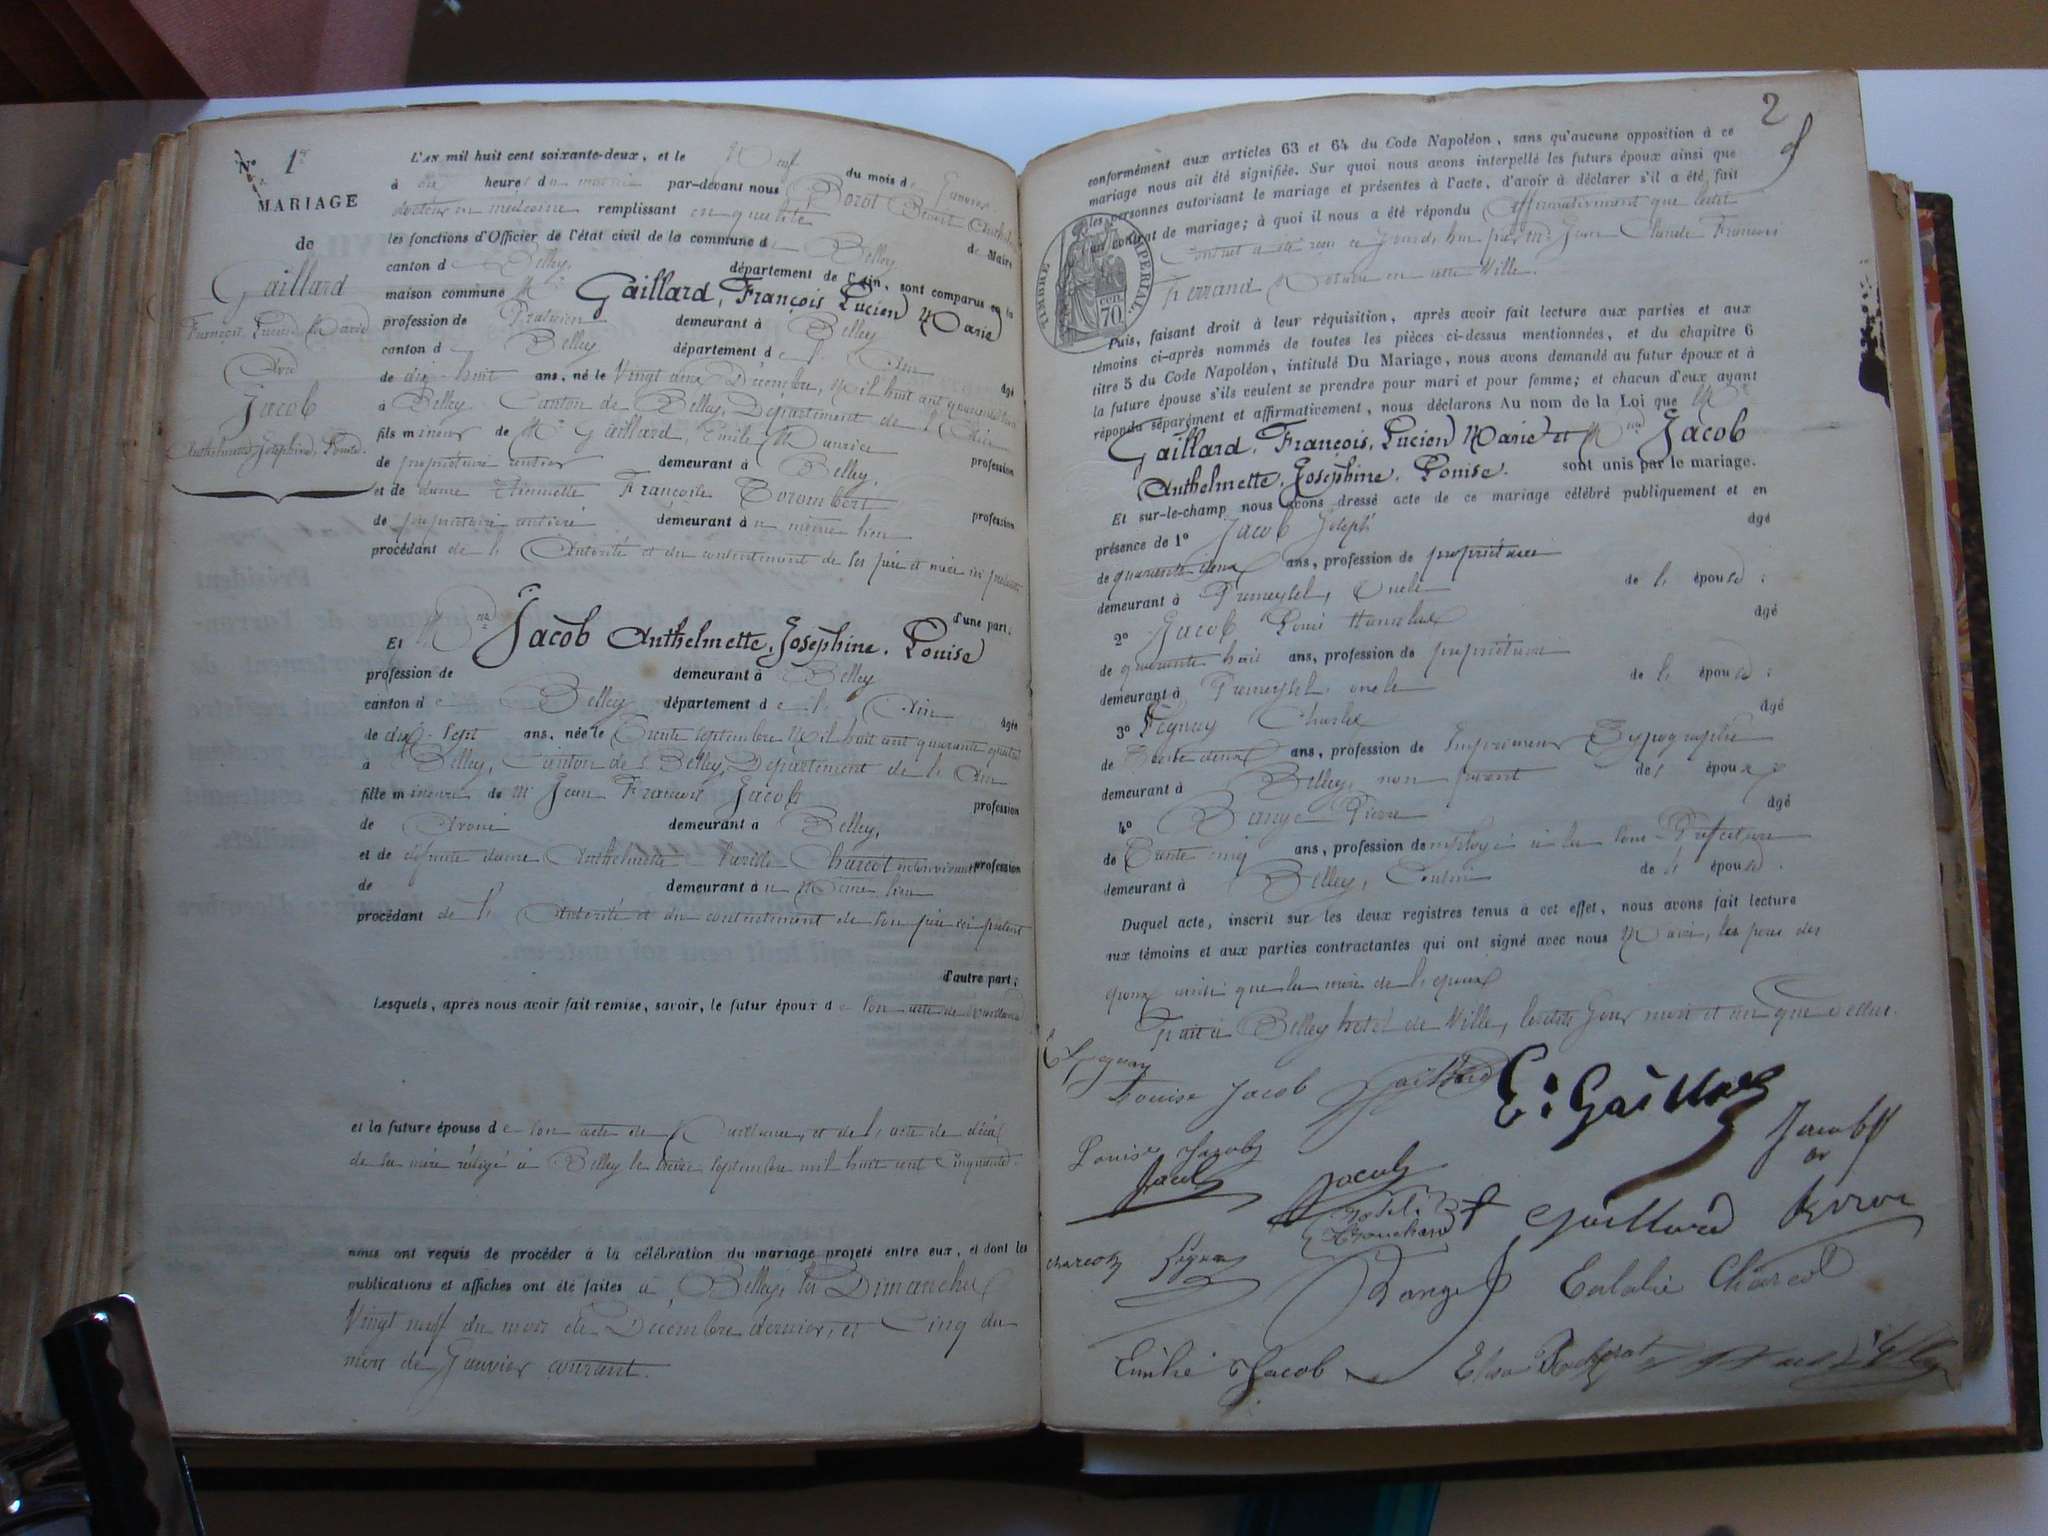 N° 1er
MARIAGE
de
Gaillard
François, Lucien Marie
Avec
Jacob
Anthelmette, Joséphine, Louise.
L'AN mil huit cent soixante-deux, et le Neuf du mois de Janvier
à dix heures du matin par-devant nous Dorot Benoit
docteur en médecine remplissant en qualité de Maire
les fonctions d'Officier de l'état civil de la commune de Belley
canton de Belley, département de l'Ain, sont comparus en la
maison commune Mr Gaillard, François Lucien Marie
profession de Praticien demeurant à Belley
canton de Belley département de l'Ain âgé
de dix-huit ans, né le Vingt deux Décembre, Mil huit cent quarante trois
à Belley Canton de Belley, Département de l'Ain
fils mineur de Mr Gaillard, Emile Maurice profession
de propriétaire rentier demeurant à Belley,
et de dame Etiennette Françoise Borombert profession
de propriétaire rentière demeurant au même lieu
procédant de l'Autorité et du consentement de ses père et mère ici présents
d'une part;
Et Mlle Jacob Anthelmette, Joséphine, Louise
profession de demeurant à Belley
canton de Belley département de l'Ain âgée
de dix-sept ans, née le Trente septembre Mil huit cent quarante quatre
à Belley, Canton de Belley, Département de l'Ain
fille mineure de Mr Jean François Jacob profession
de Avoué demeurant à Belley,
et de défunte dame Anthelmette Charcot profession
de demeurant au Même lieu
procédant de l'Autorité et du consentement de son père ici présent
d'autre part;
Lesquels, après nous avoir fait remise, savoir, le futur époux de son acte de naissance
et la future épouse de son acte de Naissance, et de l'acte de décès
de sa mère rédigé à Belley le treize septembre mil huit cent cinquante.
nous ont requis de procéder à la célébration du mariage projeté entre eux, et dont les
publications et affiches ont été faites à Belley, les Dimanches
Vingt neuf du mois de Décembre dernier, et Cinq du
mois de Janvier courant.
2
conformément aux articles 63 et 64 du Code Napoléon, sans qu'aucune opposition à ce
mariage nous ait été signifiée. Sur quoi nous avons interpellé les futurs époux ainsi que
les personnes autorisant le mariage et présentes à l'acte, d'avoir à déclarer s'il a été fait
un contrat de mariage; à quoi il nous a été répondu Affirmativement que ledit
Contrat a été reçu ce jourd'hui par Me Jean Claude François
Ferrand Notaire en cette Ville.
TIMBRE IMPERIAL
70 CEN
Puis, faisant droit à leur réquisition, après avoir fait lecture aux parties et aux
témoins ci-après nommés de toutes les pièces ci-dessus mentionnées, et du chapitre 6
titre 5 du Code Napoléon, intitulé Du Mariage, nous avons demandé au futur époux et à
la future épouse s'ils veulent se prendre pour mari et pour femme; et chacun d'eux ayant
répondu séparément et affirmativement, nous déclarons Au nom de la Loi que Mr
Gaillard, François, Lucien Marie et Mlle Jacob
Anthelmette, Joséphine, Louise. sont unis par le mariage.
Et sur-le-champ nous avons dressé acte de ce mariage célébré publiquement et en
présence de 1° Jacob Joseph âgé
de quarante deux ans, profession de propriétaire
demeurant à Premeyzel, oncle de l'épouse;
2° Jacob Louis âgé
de quarante huit ans, profession de propriétaire
demeurant à Premeyzel, oncle de l'épouse;
3° Peguay Charles âgé
de Trente deux ans, profession de Imprimeur Typographe
demeurant à Belley, non parent de l'époux
4° Dange Pierre âgé
de Trente cinq ans, profession de employé à la Sous-Préfecture
demeurant à Belley, Cousin de l'épouse.
Duquel acte, inscrit sur les deux registres tenus à cet effet, nous avons fait lecture
aux témoins et aux parties contractantes qui ont signé avec nous Maire, les pères des
époux ainsi que la mère de l'époux
Fait à Belley hôtel de Ville, lesdits jour mois et an que dessus.
Louise Jacob Gaillard E. Gaillard
Louise Jacob Jacob
Jacob Jacob Gaillard
Charcot Peguay Dange Eulalie Charcot
Emilie Jacob Elisa